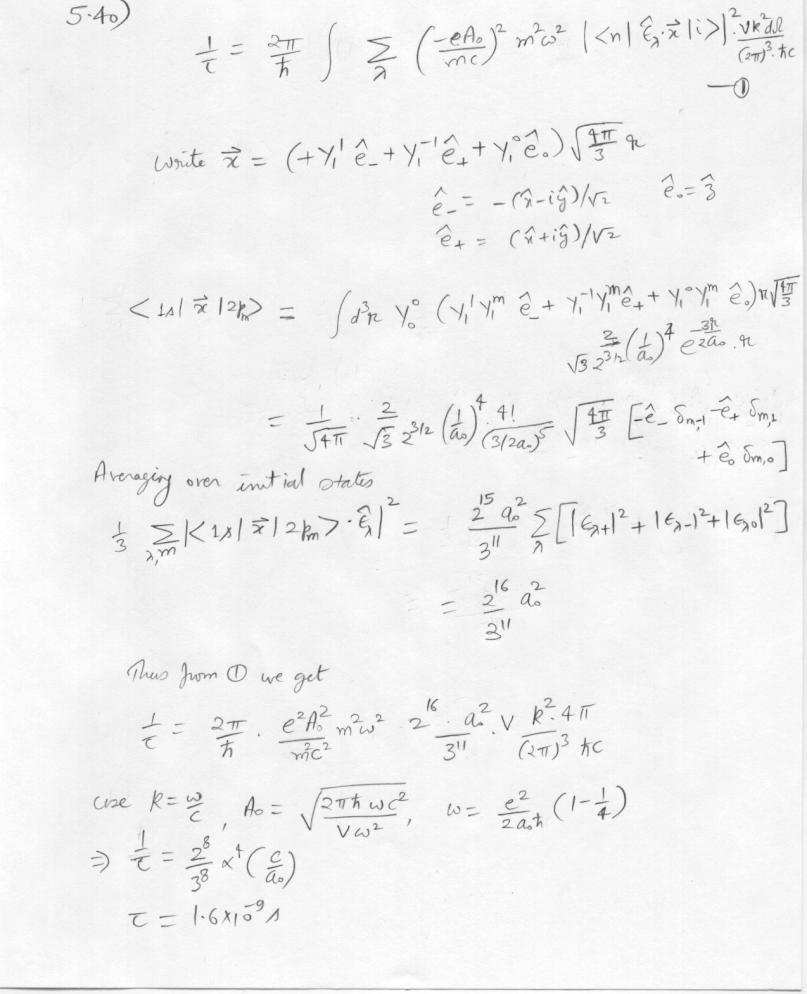 5.40)
1/τ = 2π/ħ ∫ Σ_λ (-eA₀/mc)² m²ω² |<n| ε̂_λ·x⃗ |i>|² · Vk²dΩ/(2π)³·ħc
—①
Write x⃗ = (+Y₁¹ ê₋ + Y₁⁻¹ ê₊ + Y₁⁰ ê₀) √(4π/3) r
ê₋ = -(x̂-iŷ)/√2    ê₀ = ẑ
ê₊ = (x̂+iŷ)/√2
<1s| x⃗ |2p_m> = ∫d³r Y₀⁰ (Y₁¹Y₁^m ê₋ + Y₁⁻¹Y₁^m ê₊ + Y₁⁰Y₁^m ê₀) r √(4π/3)
2/(√3 2^{3/2}) (1/a₀)⁴ e^{-3r/2a₀} · r
= 1/√(4π) · 2/(√3 2^{3/2}) (1/a₀)⁴ · 4!/(3/2a₀)⁵ √(4π/3) [-ê₋ δ_{m,-1} -ê₊ δ_{m,1}
+ ê₀ δ_{m,0}]
Averaging over initial states
1/3 Σ_{λ,m} |<1s| x⃗ |2p_m>·ε̂_λ|² = 2¹⁵ a₀²/3¹¹ Σ_λ [|ε_{λ+}|² + |ε_{λ-}|² + |ε_{λ0}|²]
= 2¹⁶ a₀²/3¹¹
Thus from ① we get
1/τ = 2π/ħ · e²A₀²/m²c² m²ω² 2¹⁶·a₀²/3¹¹ · V k²·4π/(2π)³ ħc
use k = ω/c, A₀ = √(2πħωc²/Vω²), ω = e²/2a₀ħ (1-1/4)
⇒ 1/τ = 2⁸/3⁸ α⁴ (c/a₀)
τ = 1.6×10⁻⁹ s